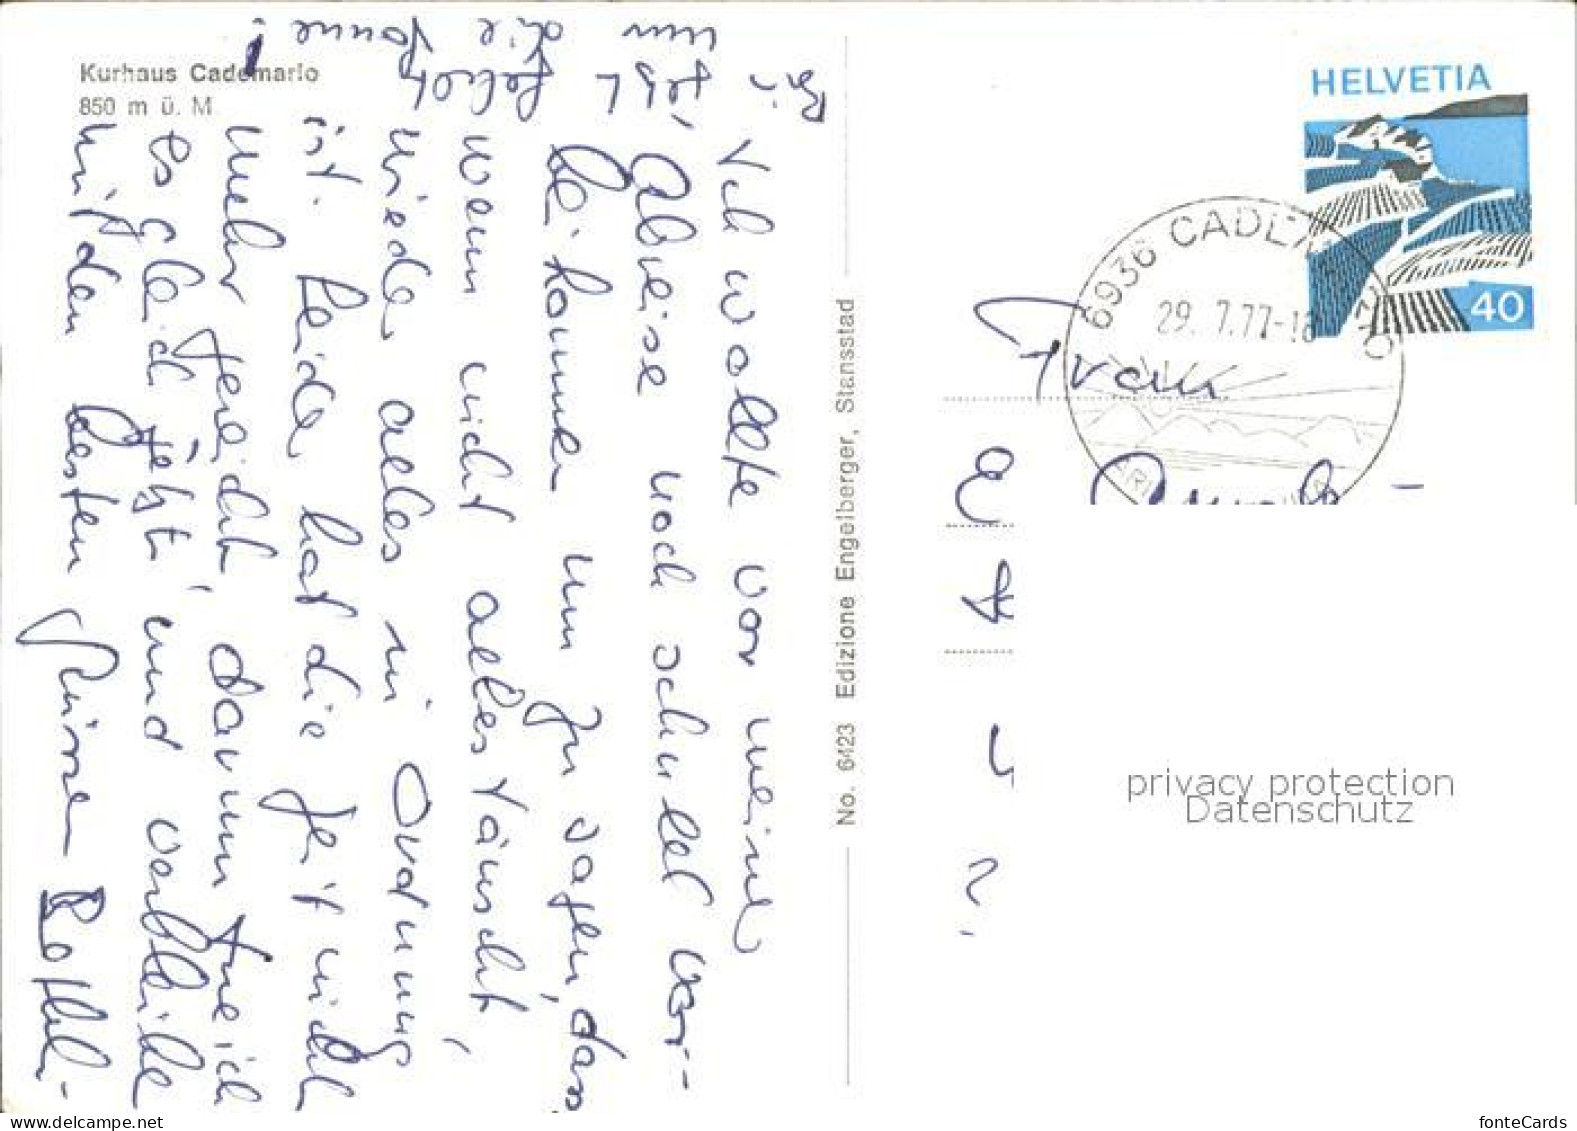 Kurhaus Cademario
850 m ü. M.
Ich wollte vor meine
Abreise noch schnell vor-
bei kommen um zu sagen, dass
wenn nicht alles täuscht,
wieder alles in Ordnung
ist. Leider hat die Zeit nicht
mehr gereicht, darum tue ich
es gleich jetzt, und verbleibe
mit den besten Grüssen
nun
die
Sonne!
No. 6423 Edizione Engelberger, Stansstad
HELVETIA
40
6936 CADEMARIO
29. 7. 77-18
Frau
E
privacy protection
Datenschutz
www.delcampe.net
fonteCards